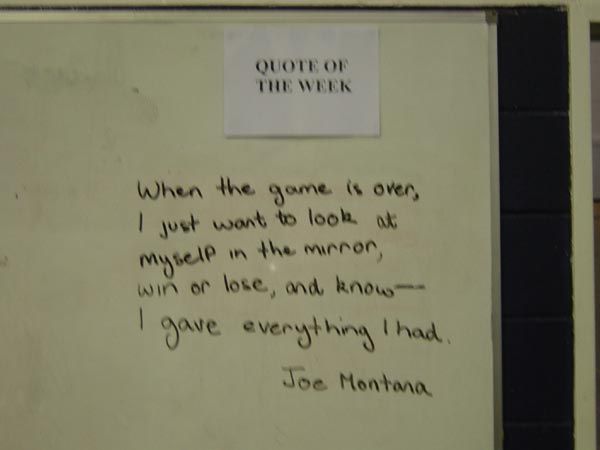 QUOTE OF
THE WEEK
When the game is over,
I just want to look at
myself in the mirror,
win or lose, and know—
I gave everything I had.
Joe Montana